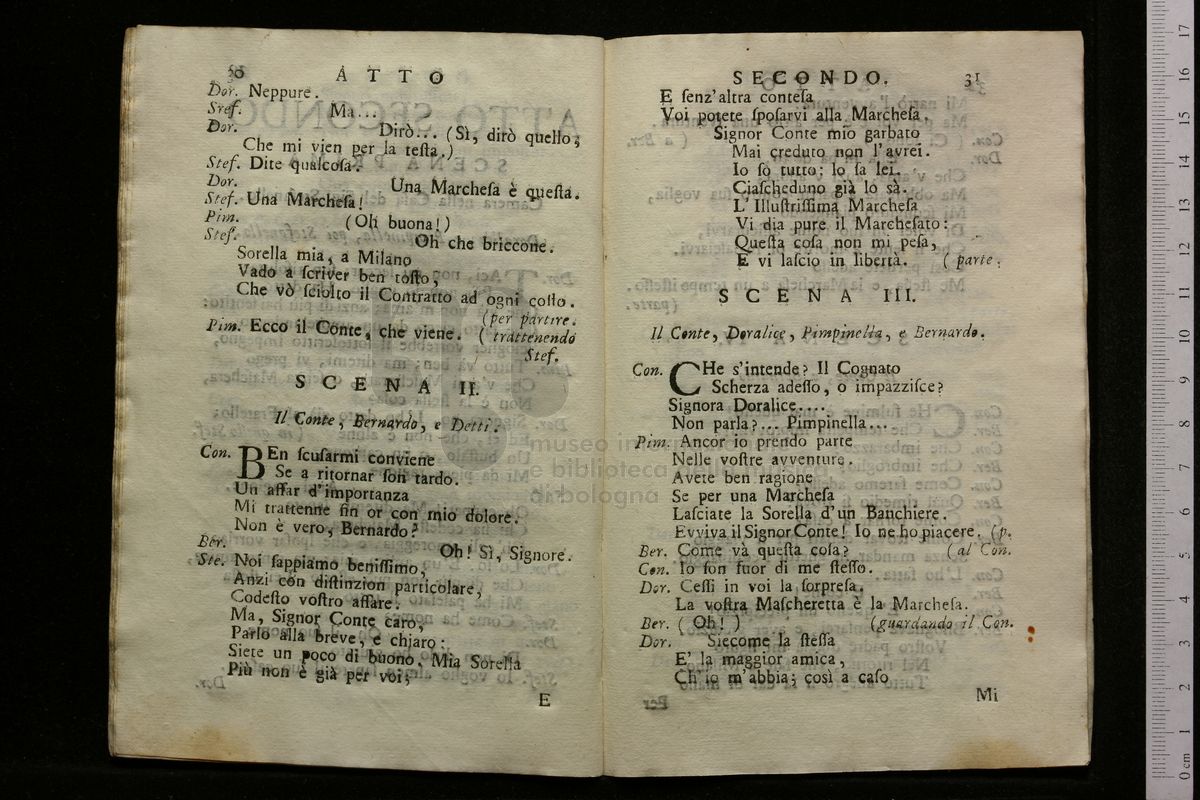 30 ATTO
Dor. Neppure.
Stef. Ma...
Dor. Dirò... (Sì, dirò quello,
Che mi vien per la testa.)
Stef. Dite qualcosa.
Dor. Una Marchesa è questa.
Stef. Una Marchesa!
Pim. (Oh buona!)
Stef. Oh che briccone.
Sorella mia, a Milano
Vado a scriver ben tosto,
Che vò sciolto il Contratto ad ogni costo.
(per partire.
Pim. Ecco il Conte, che viene. (trattenendo
Stef.
SCENA II.
Il Conte, Bernardo, e Detti.
Con. BEn scusarmi conviene
Se a ritornar son tardo.
Un affar d'importanza
Mi trattenne fin or con mio dolore.
Non è vero, Bernardo?
Ber. Oh! Sì, Signore.
Ste. Noi sappiamo benissimo,
Anzi con distinzion particolare,
Codesto vostro affare.
Ma, Signor Conte caro,
Parlo alla breve, e chiaro:
Siete un poco di buono, Mia Sorella
Più non è già per voi;
E
SECONDO. 31
E senz'altra contesa
Voi potete sposarvi alla Marchesa.
Signor Conte mio garbato
Mai creduto non l'avrei.
Io sò tutto; lo sa lei.
Ciascheduno già lo sà.
L'Illustrissima Marchesa
Vi dia pure il Marchesato:
Questa cosa non mi pesa,
E vi lascio in libertà. (parte.
SCENA III.
Il Conte, Doralice, Pimpinella, e Bernardo.
Con. CHe s'intende? Il Cognato
Scherza adesso, o impazzisce?
Signora Doralice....
Non parla?... Pimpinella...
Pim. Ancor io prendo parte
Nelle vostre avventure.
Avete ben ragione
Se per una Marchesa
Lasciate la Sorella d'un Banchiere.
Evviva il Signor Conte! Io ne ho piacere. (p.
Ber. Come và questa cosa? (al Con.
Con. Io son fuor di me stesso.
Dor. Cessi in voi la sorpresa.
La vostra Mascheretta è la Marchesa.
Ber. (Oh!) (guardando il Con.
Dor. Siccome la stessa
E' la maggior amica,
Ch'io m'abbia; così a caso
Mi